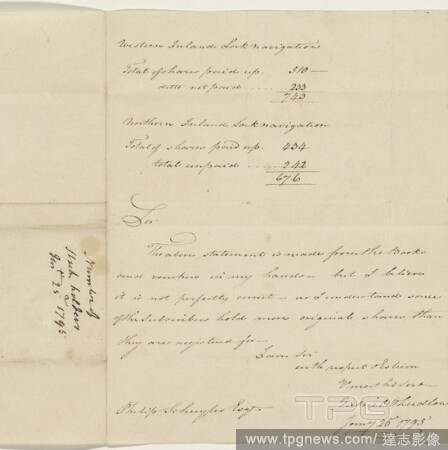 Western Inland Lock navigations
Total of shares paid up. 510 —
ditto not paid .... 233
743
Northern Inland Lock navigation
Total of shares paid up. 434
total unpaid .... 242
676
Sir
The above statement is made from the Books
and vouchers in my hands – but I believe
it is not perfectly correct – as I understand some
of the Subscribers hold more original shares than
they are registered for –
I am Sir
with respect & Esteem
Your
Philip Schuyler Esqr.
Thudlow
Jany 26 1793
Number of
Stock holders
Jany 25 1793
TPG
www.tpgnews.com/ 達志影像